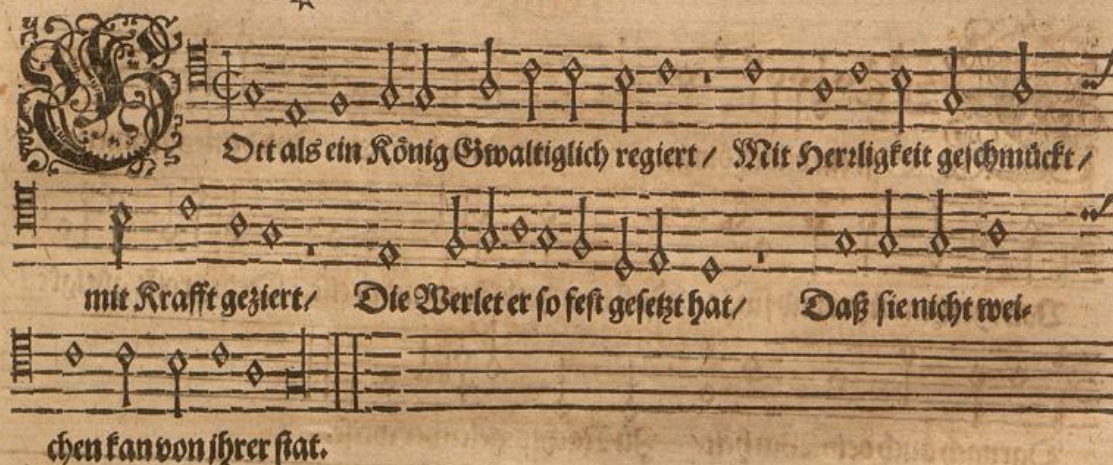 GOtt als ein König Gwaltiglich regiert / Mit Herrligkeit geschmückt /
mit Krafft geziert / Die Werlet er so fest gesetzt hat / Daß sie nicht wei-
chen kan von jhrer stat.